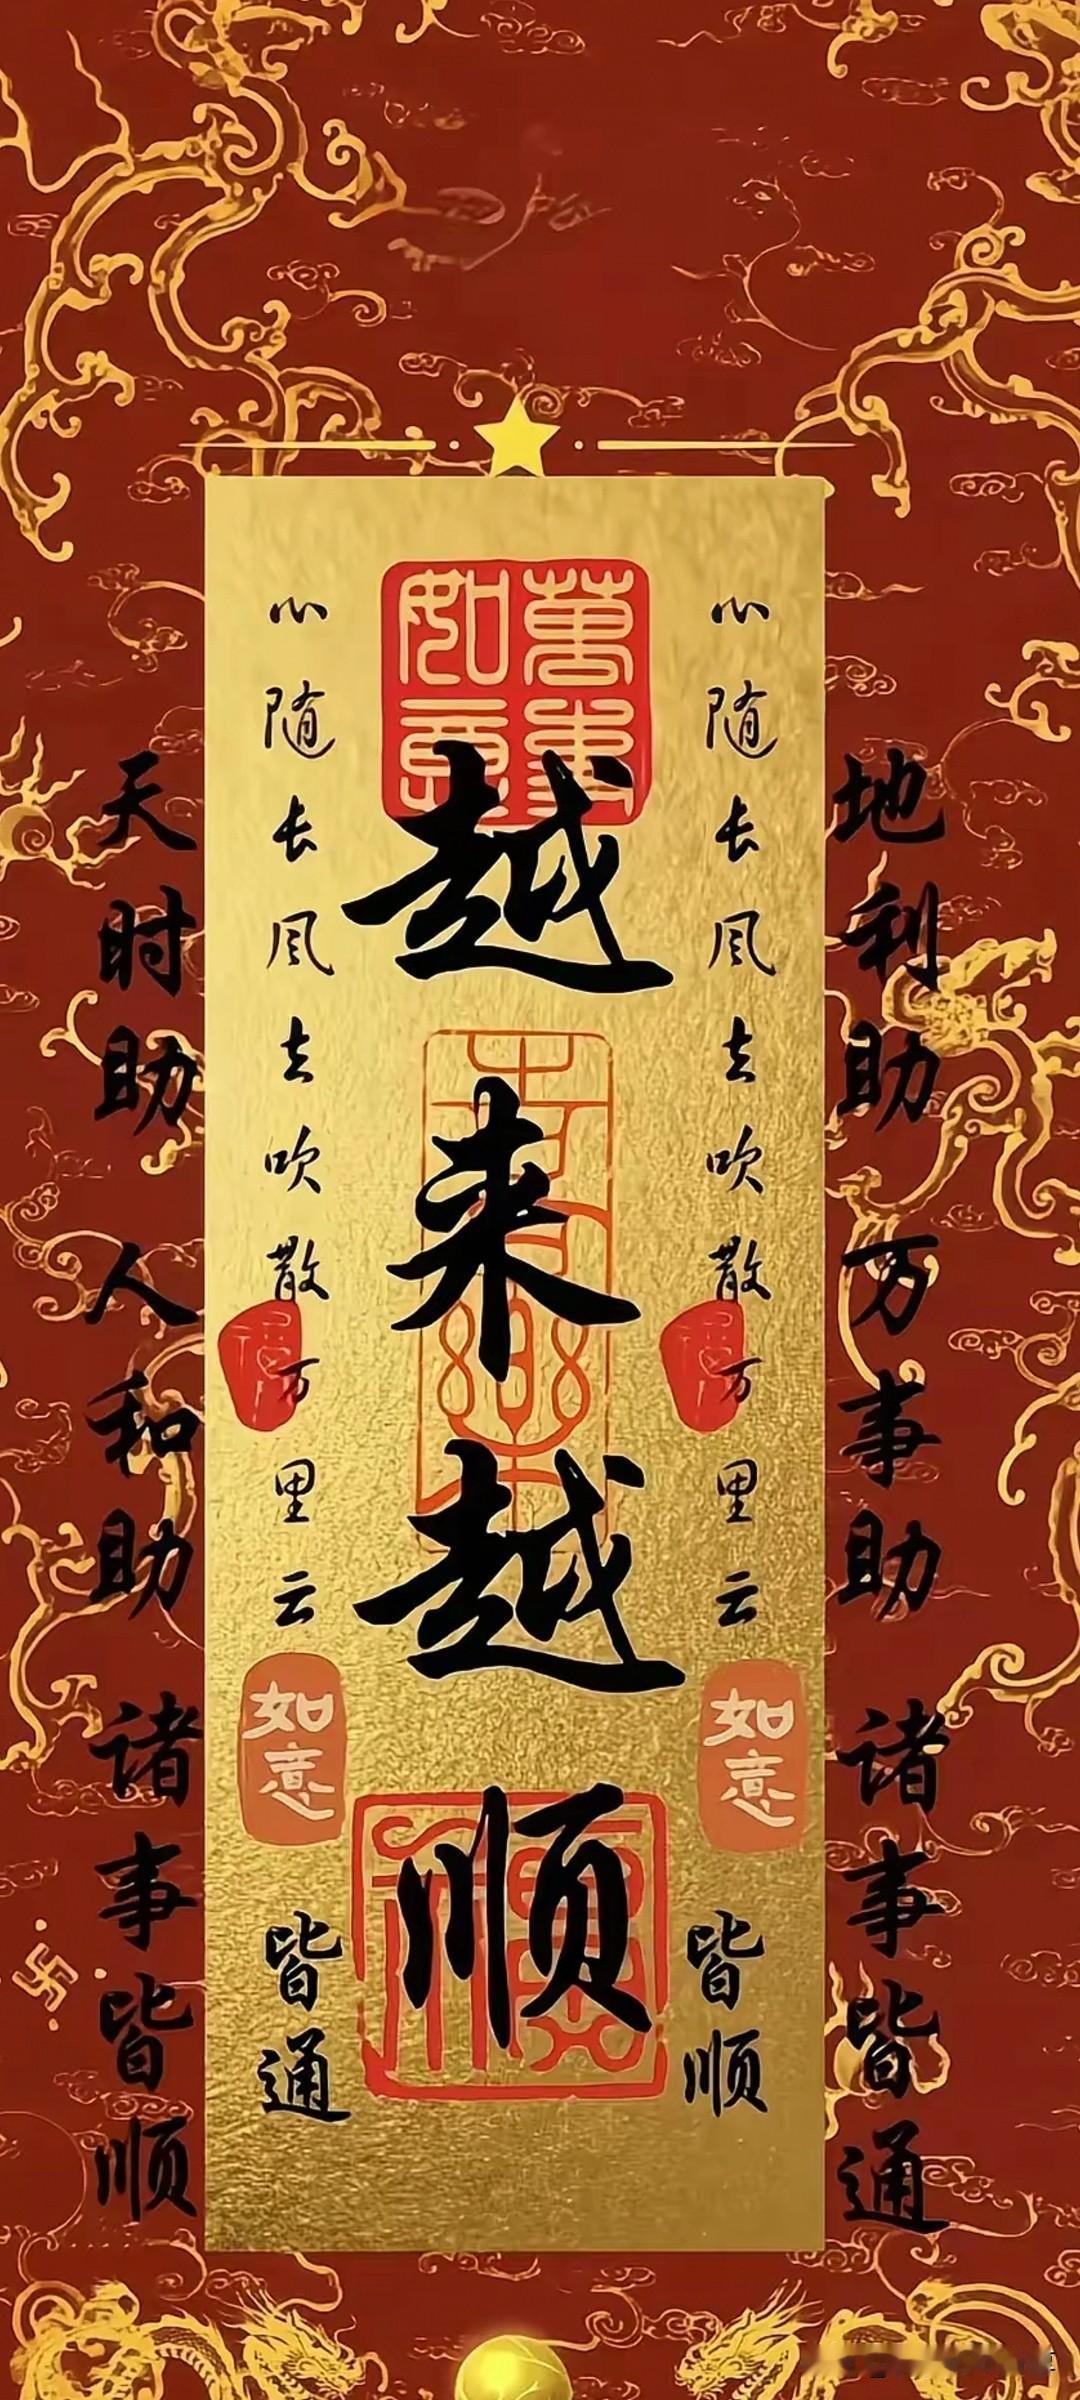 萬事如意
越来越顺
天时助 人和助 诸事皆顺
地利助 万事助 诸事皆通
心随长风去吹散万里云
如意
皆通
心随长风去吹散万里云
如意
皆顺